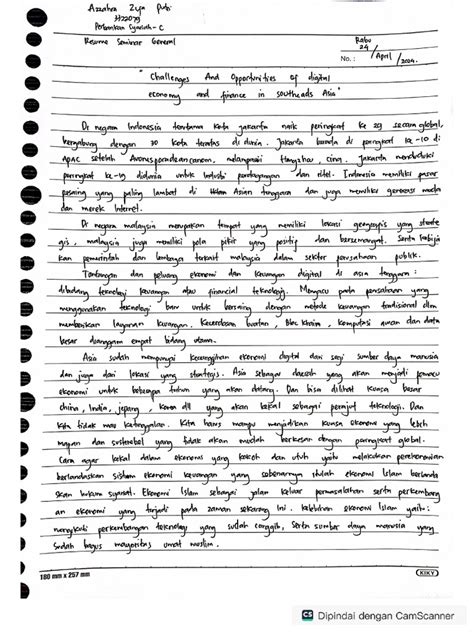 Azzahra Zyja Putri
Perbankan Syariah - C
Resume Seminar General
Rabu
No. : 24 / April / 2024.
" Challenges And Opportunities of digital
economy and finance in southeads Asia "
Di negara Indonesia terutama kota jakarta naik peringkat ke 29 secara global,
bergabung dengan 30 kota teratas di dunia. Jakarta berada di peringkat ke-10 di
APAC setelah cina. Jakarta menduduki
peringkat ke-19 didunia untuk Industri perdagangan dan ritel. Indonesia memiliki pasar
pesaing yang paling lambat di Asian tenggara dan juga memiliki generasi muda
dan merek Internet.
Di negara malaysia merupakan tempat yang memiliki lokasi geografis yang strate
gis, malaysia juga memiliki pola pikir yang positif dan bersemangat. Serta kebija
kan pemerintah dan lembaga terkait malaysia dalam sektor perusahaan publik.
Tantangan dan peluang ekonomi dan keuangan digital di asia tenggara :
dibidang teknologi keuangan atau financial teknologi. Mengacu pada perusahaan yang
menggunakan teknologi baru untuk bersaing dengan metode keuangan tradisional dlm
memberikan layanan keuangan. Kecerdasan buatan, Bloc khain, komputasi awan dan data
besar dianggam empat bidang utama.
Asia sudah mempunyai kecanggihan ekonomi digital dari segi sumber daya manusia
dan juga dari lokasi yang strategis. Asia sebagai daerah yang akan menjadi pemacu
ekonomi untuk beberapa tahun yang akan datang. Dan bisa dilihat kuasa besar
china, India, jepang, korea dll yang akan kekal sebagai penjut teknologi. Dan
kita tidak mau ketinggalan. Kita harus mampu menjadikan kuasa ekonomi yang lebih
mapan dan yang tidak akan mudah berkesan dengan peringkat global.
Cara agar kekal dalam ekonomi yang kokoh dan utuh yaitu melakukan
berlandaskan sistem ekonomi keuangan yang sebenarnya ialah ekonomi Islam berlanda
skan hukum syariat. Ekonomi Islam sebagai jalan keluar permasalahan serta perkembang
an ekonomi yang terjadi pada zaman sekarang ini. kelebihan ekonomi Islam yaitu :
mengikuti perkembangan teknologi yang sudah canggih, Serta sumber daya manusia yang
Sudah bagus mayoritas umat muslim.
180 mm x 257 mm
KIKY
CS Dipindai dengan CamScanner